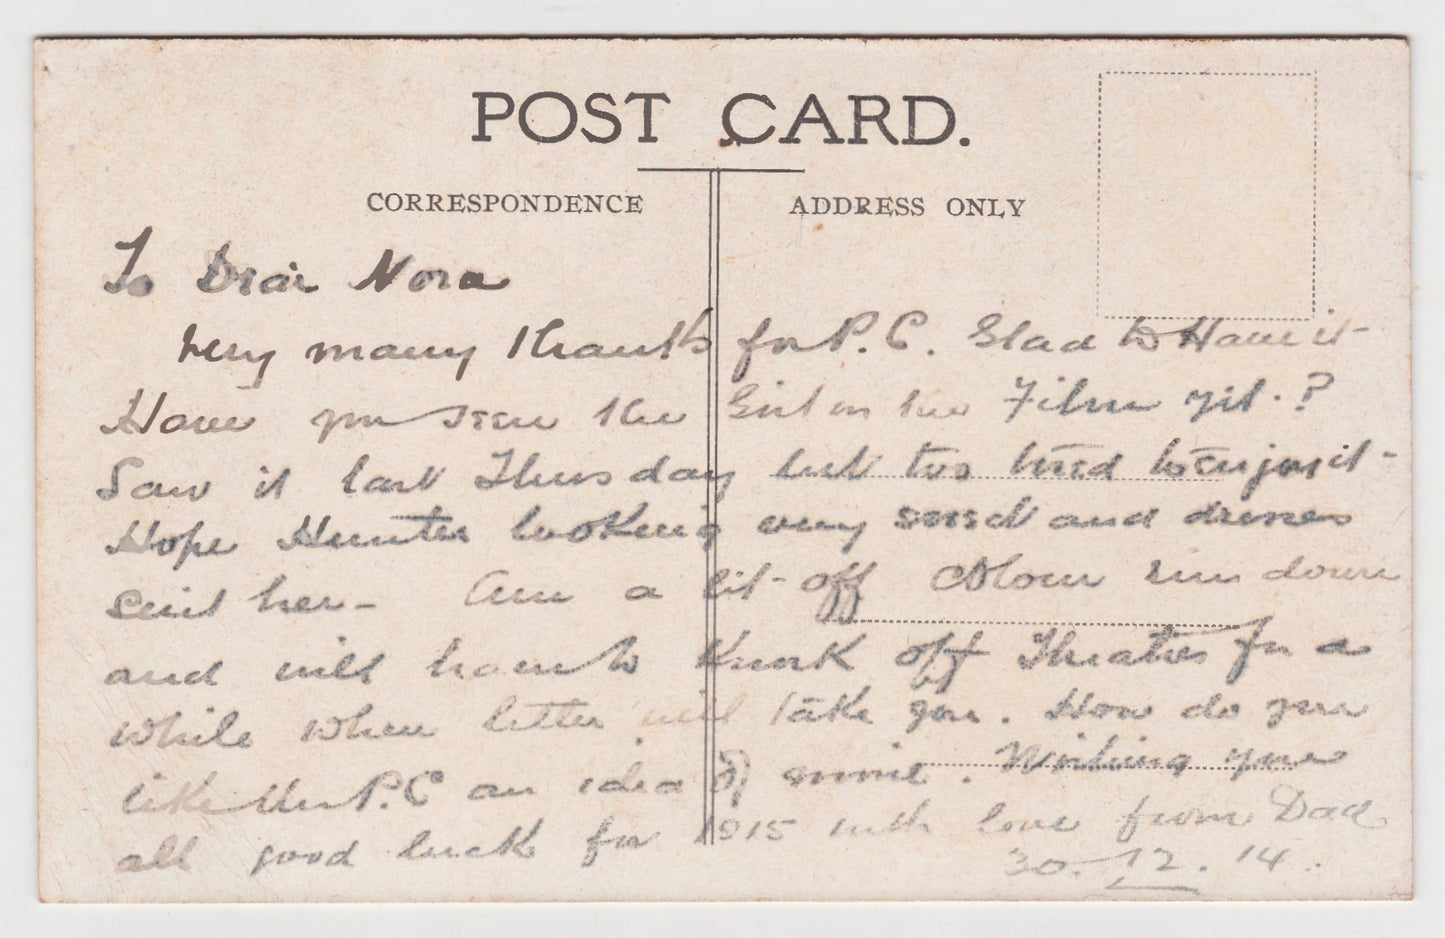 POST CARD.
CORRESPONDENCE
ADDRESS ONLY
To Dear Nora
Very many thanks for P.C. Glad to Have it
Have you seen the Girl in the Film yet.?
Saw it last Thursday but too tired to enjoy it-
Hope Hunter looking very and dresses
suit her- Am a bit off colour run down
and will have to knock off Theatres for a
while when better will take you. How do you
like the P.C an idea of mine. Wishing you
all good luck for 1915 with love from Dad
30.12.14.